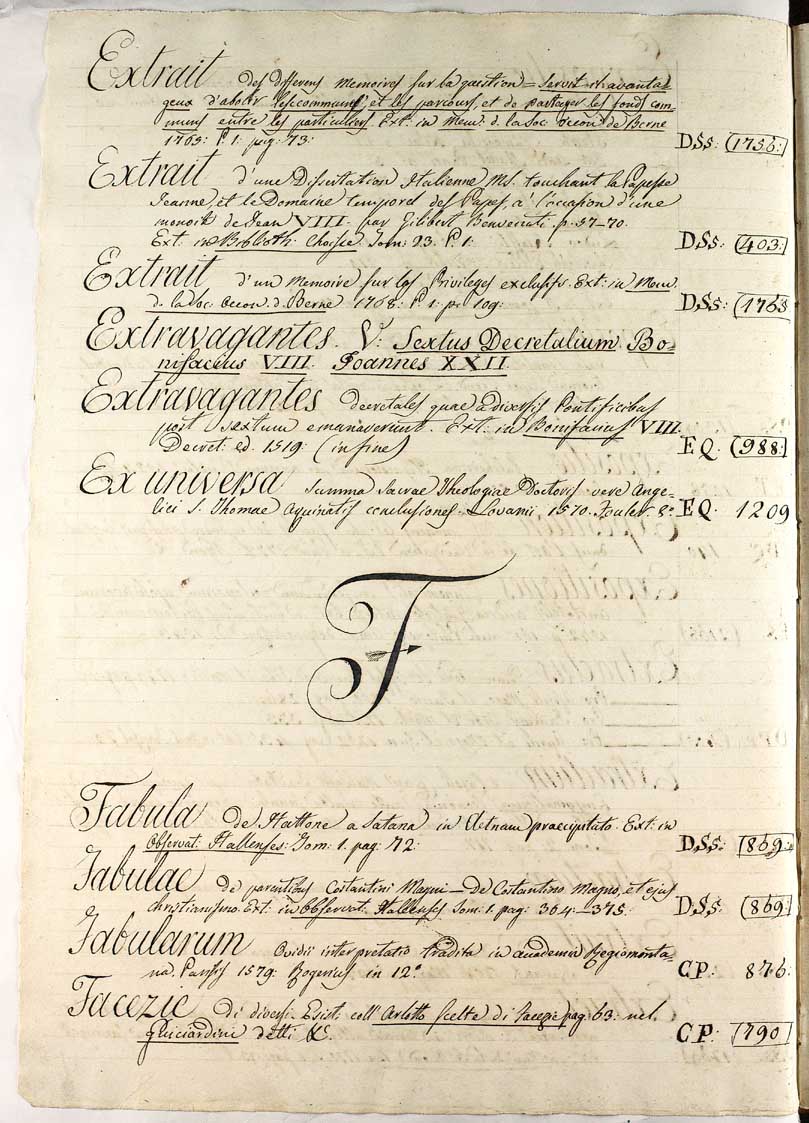 Extrait des differens Memoires sur la question = seroit il avanta-
geux d'abolir les communes, et les parcours, et de partager les fonds com-
muns entre les particuliers Ext: in Mem: d. la Soc: Oecon: de Berne
1763: P. 1: pag: 73: DSs: (1756:)
Extrait d'une Dissertation Italienne MS. touchant la Papesse
Jeanne, et le Domaine temporel des Papes, a l'occasion d'une
monoie de Jean VIII. par Gilibert Benvenuti. p: 37–70.
Ext. in Biblioth: Choisie Tom: 23. P. 1: DSs: (403:)
Extrait d'un Memoire sur les Privileges exclusifs. Ext: in Mem.
d. la Soc Oecon. d. Berne 1768: P. 1: p: 109: DSs: (1763
Extravagantes. V: Sextus Decretalium. Bo-
nifacius VIII. Joannes XXII.
Extravagantes decretales quae a diversis Pontificibus
post Sextum emanaverunt. Ext: in Bonifacius VIII
Decret: ed. 1519: (in fine) EQ. (988:)
Ex universa Summa Sacrae Theologiae Doctoris vere Ange-
lici S. Thomae Aquinatis conclusiones. Lovanii 1570. 8º EQ. 1209
F
Fabula de Hattone a Satana in Aetnam praecipitato. Ext: in
Observat: Hallenses: Tom: 1. pag: 72: DSs. (869:)
Fabulae de parentibus Costantini Magni – De Costantino Magno, et ejus
christianismo. Ext: in Observat. Hallenses Tom: 1. pag: 364–375: DSs: (869:)
Fabularum Ovidii interpretatio tradita in academia Regiomonta-
na. Parisiis 1579: in 12º CP: 876:
Facezie di diversi. Esist: coll'Arlotto Scelte di facezie pag: 63: nel
Guicciardini detti &c. CP: (790)